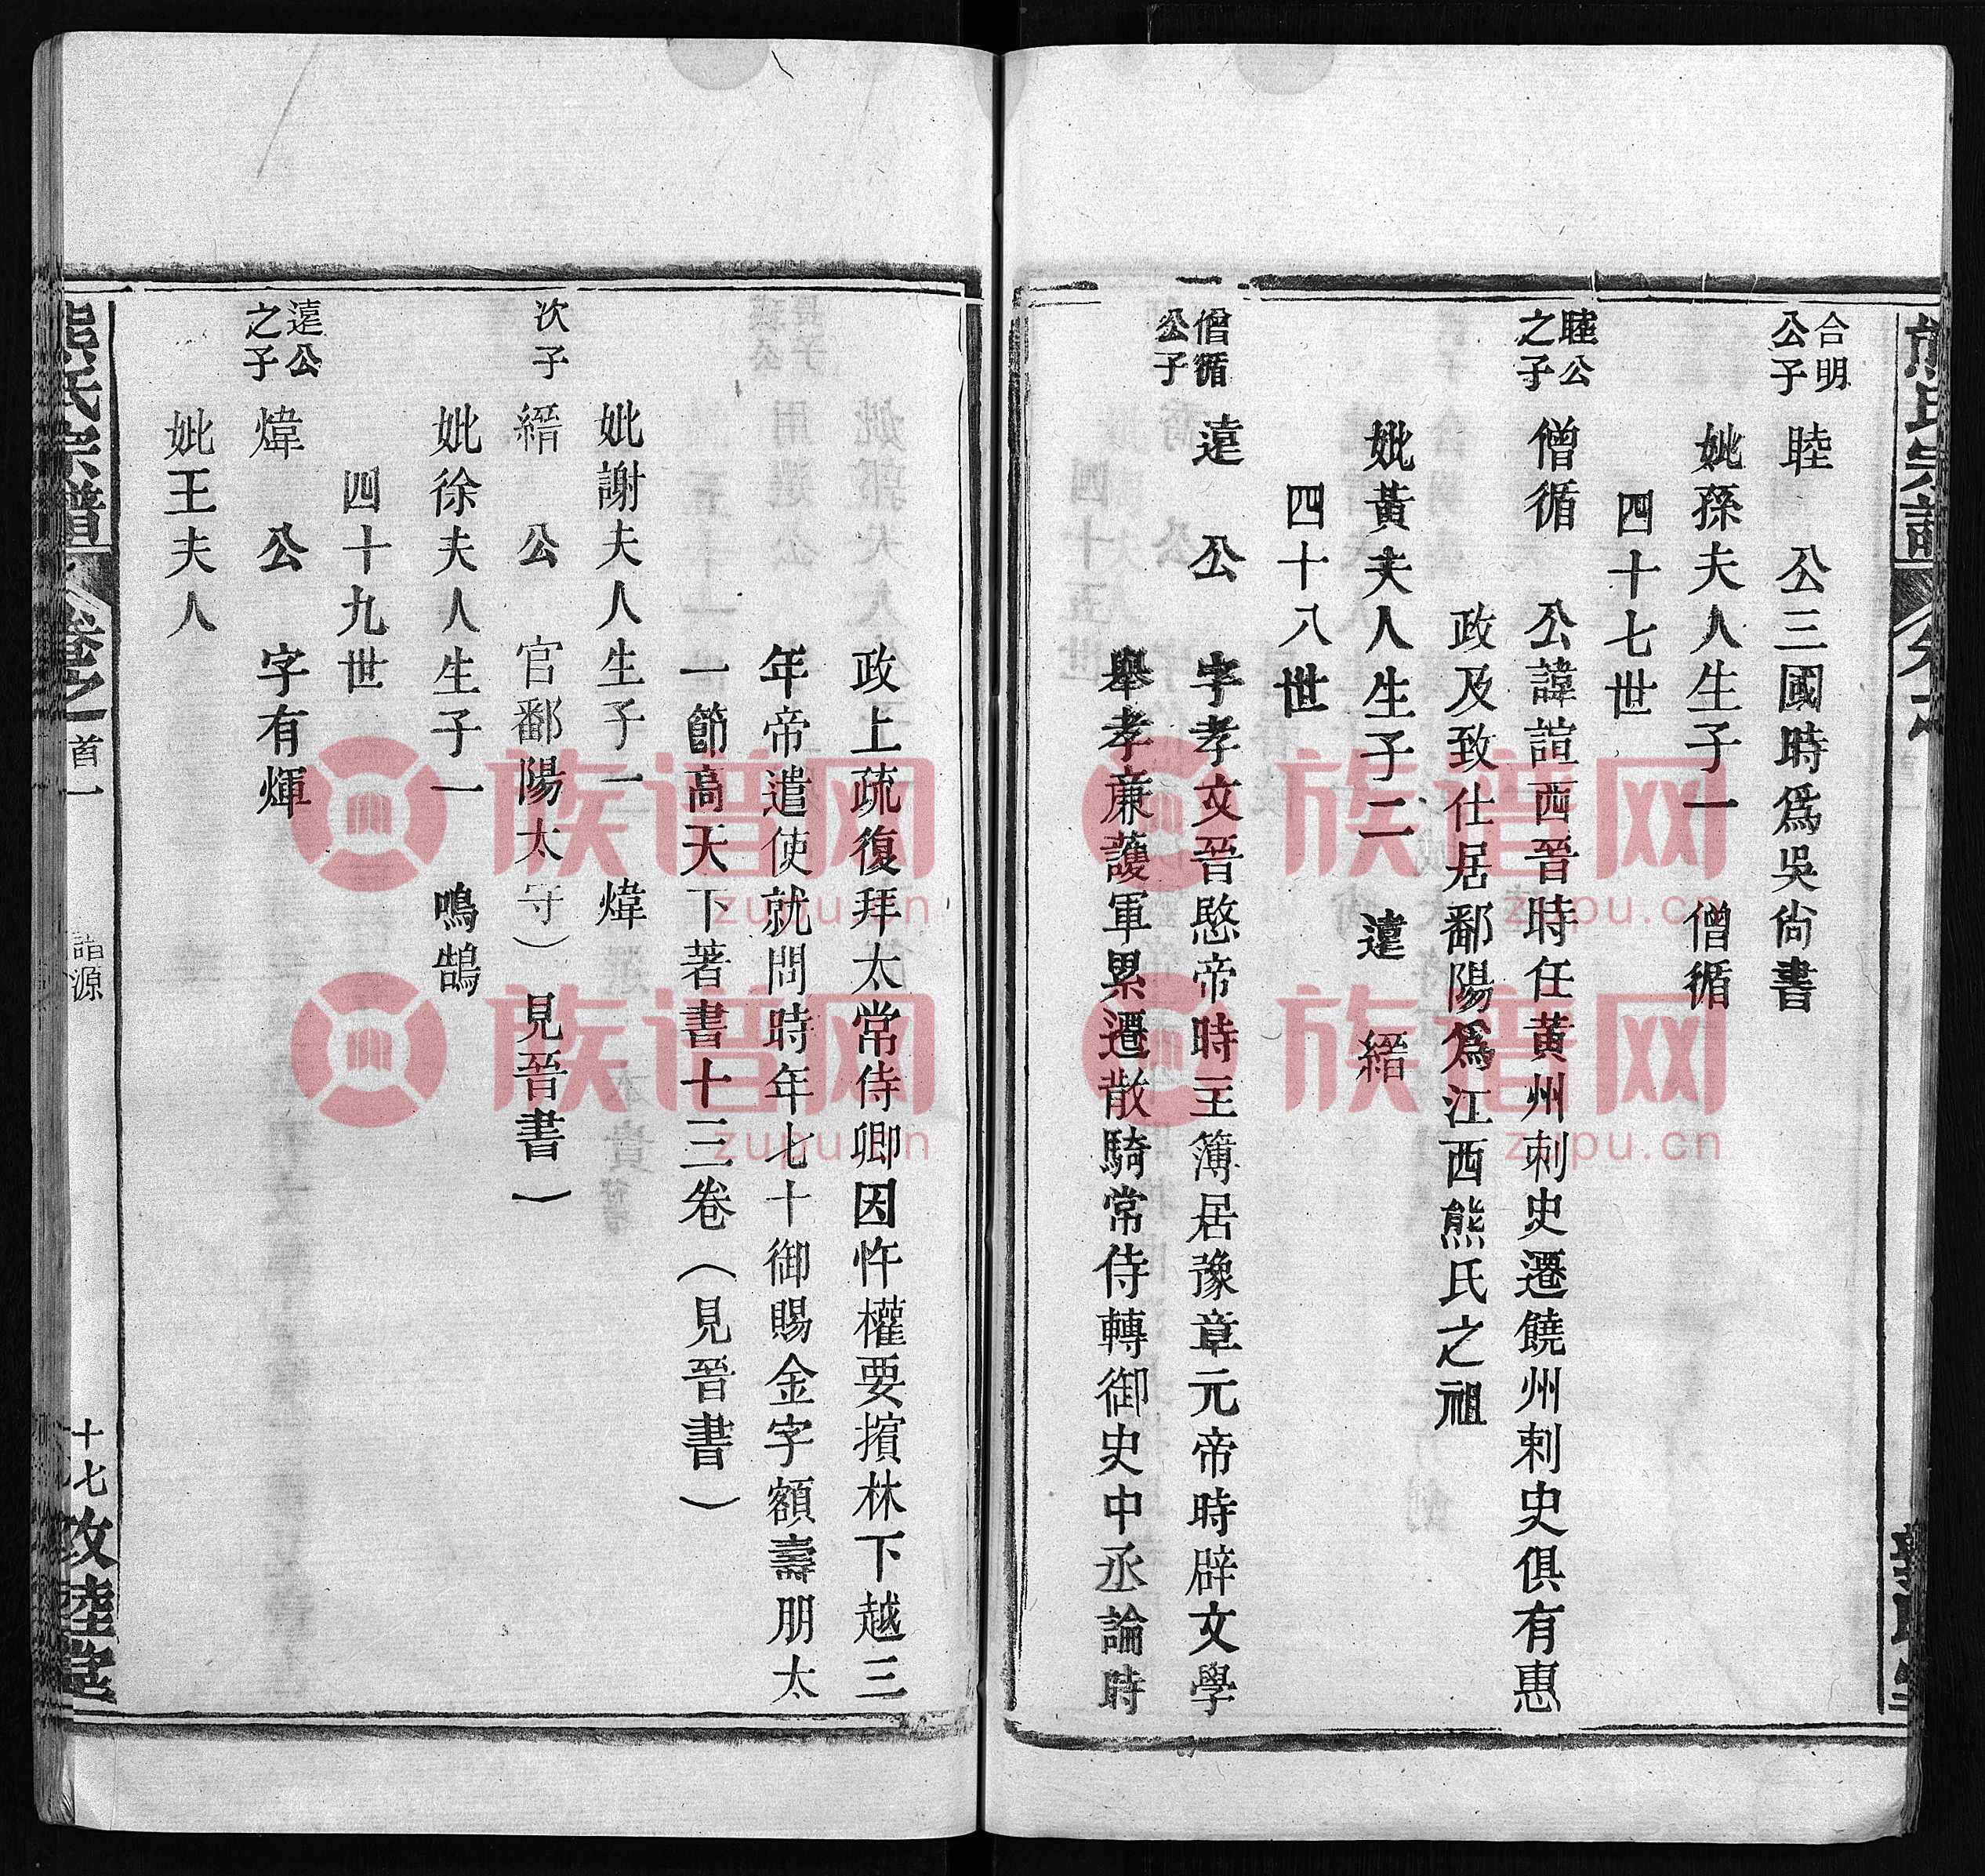 合明公子 睦 公三國時爲吳尙書
妣孫夫人生子一 僧循
四十七世
睦公之子 僧循 公諱諠西晉時任黃州刺史遷饒州刺史俱有惠
政及致仕居鄱陽爲江西熊氏之祖
妣黃夫人生子二 遠 縉
四十八世
僧循公子 遠 公 字孝文晉愍帝時主簿居豫章元帝時辟文學
舉孝亷護軍累遷散騎常侍轉御史中丞論時
政上疏復拜太常侍卿因忤權要擯林下越三
年帝遣使就問時年七十御賜金字額壽朋太
一節高天下著書十三卷(見晉書)
妣謝夫人生子一 煒
次子 縉 公 官鄱陽太守) 見晉書)
妣徐夫人生子一 鳴鵠
四十九世
遠公之子 煒 公 字有煇
妣王夫人
熊氏宗譜 卷之一 首一 詣源 十七 敦睦堂
族谱网
zupu.cn
族谱网
zupu.cn
族谱网
zupu.cn
族谱网
zupu.cn